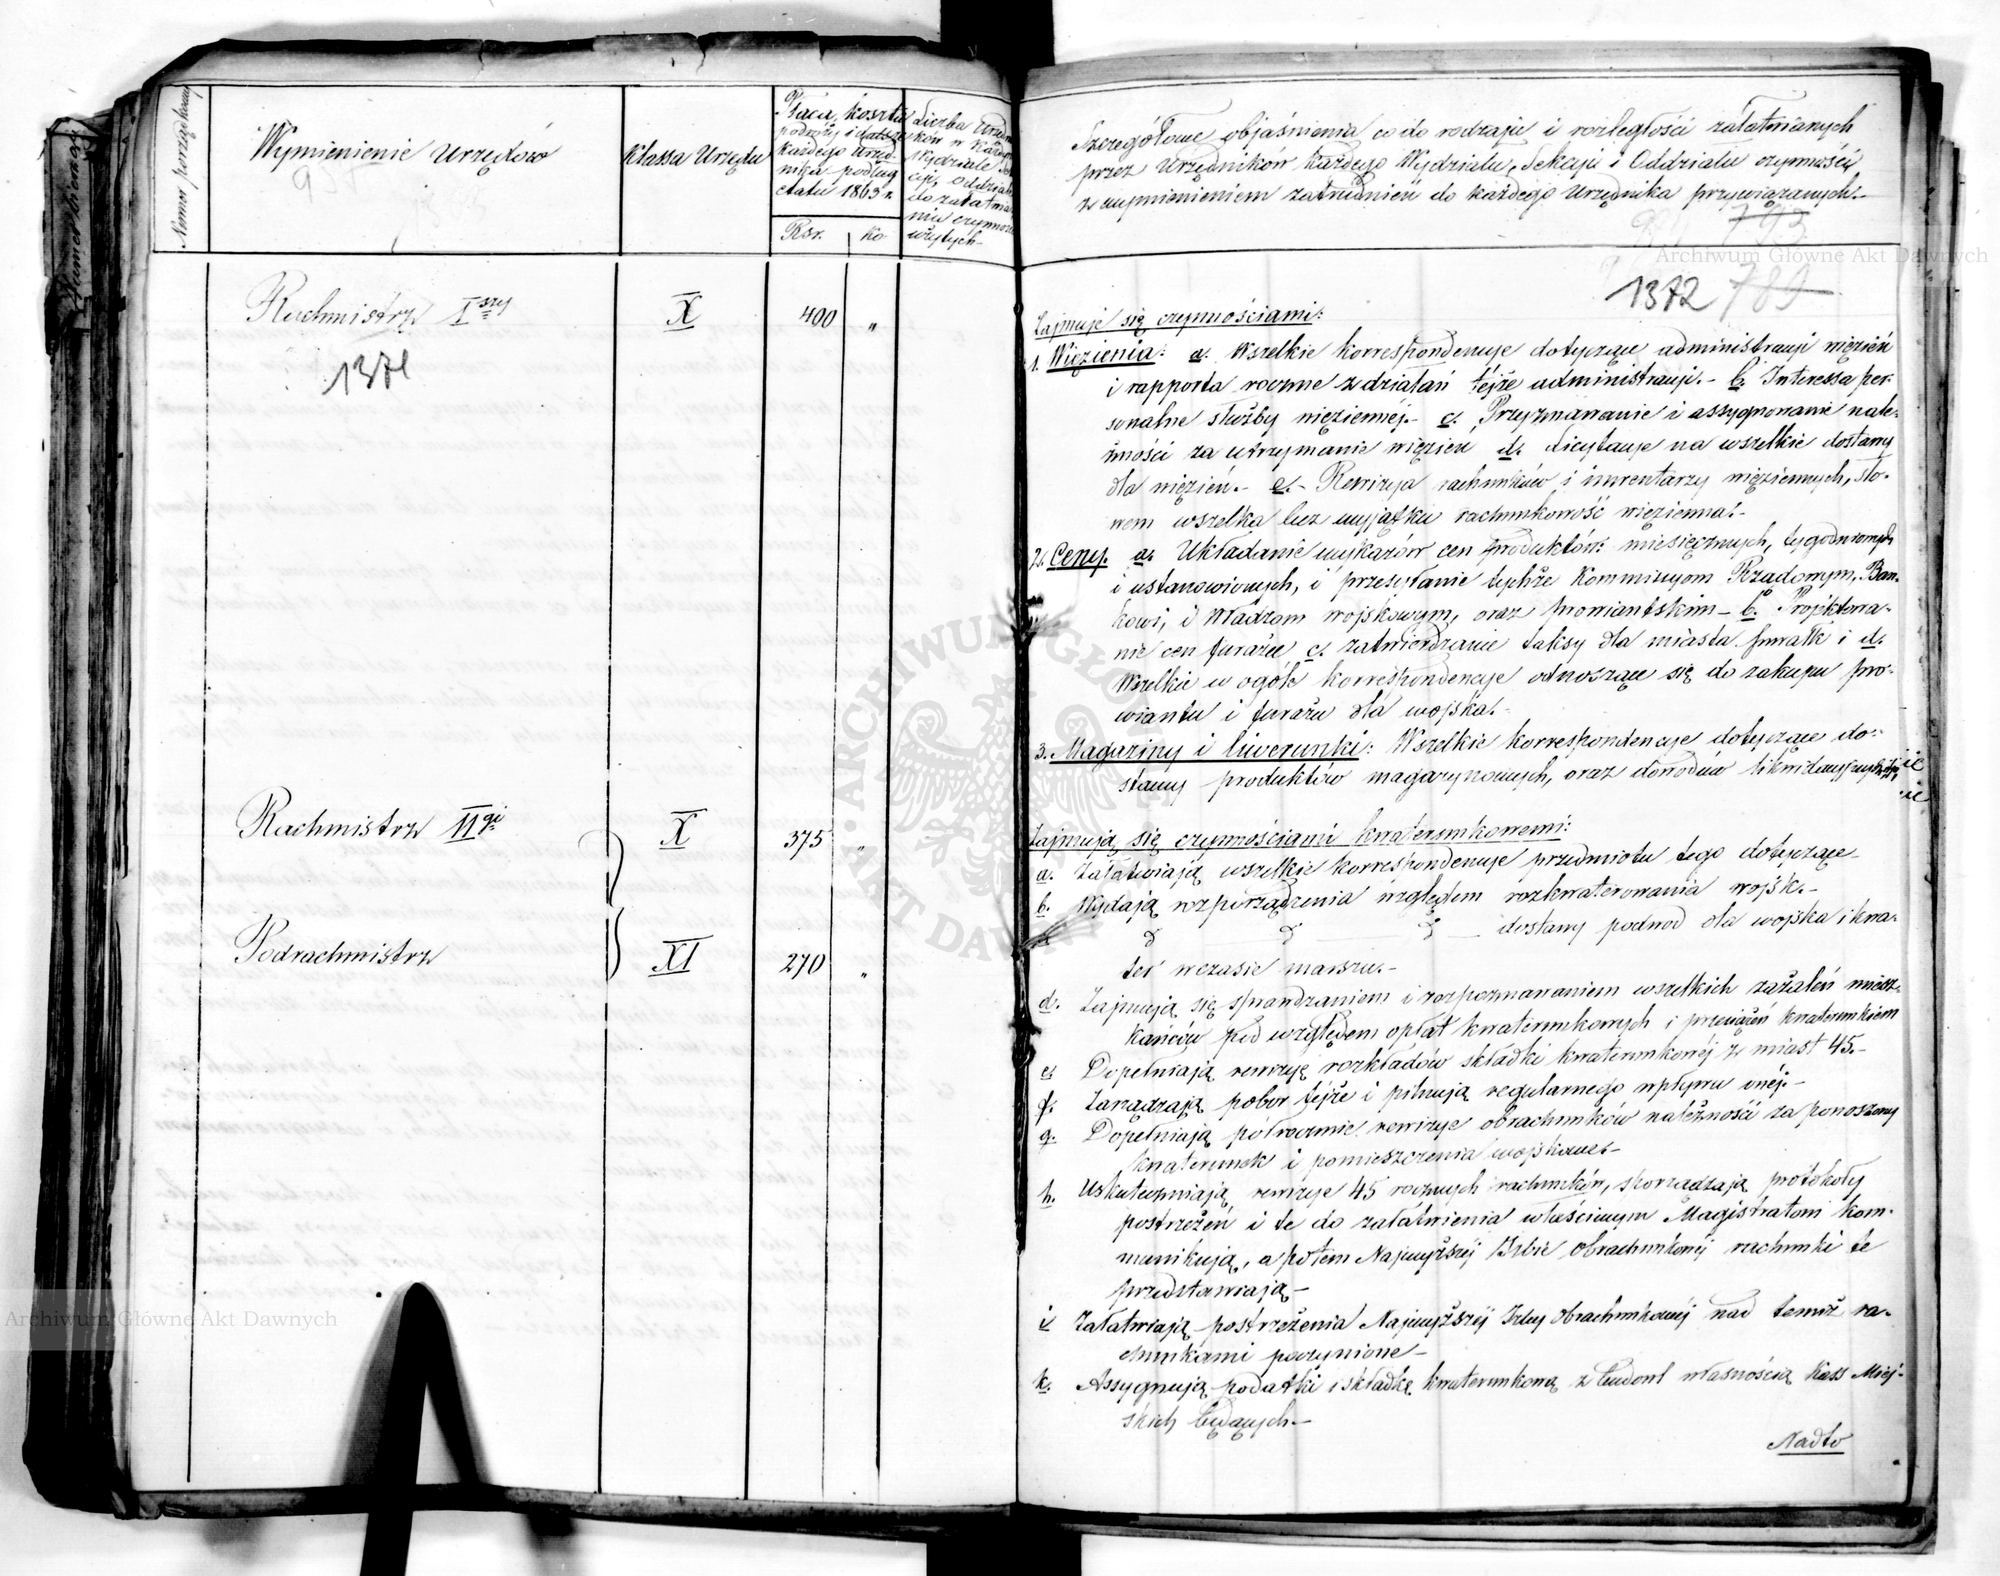 Numer porządkowy
Wymienienie Urzędów
Klassa Urzędu
Płaca, koszta
podróży i dalsze
każdego Urzęd-
nika podług
etatu 1863 r.
Rsr.
ko
Liczba Urzędni-
ków w każdym
Wydziale Sek-
cji, Oddziale
do załatwia-
nia czynności
użytych
Rachmistrz I szy
X
400 "
1371
Rachmistrz II gi
X
375 "
Podrachmistrz
XI
270 "
Szczegółowe objaśnienia co do rodzaju i rozległości załatwianych
przez Urzędników każdego Wydziału, Sekcji i Oddziału czynności
z wymienieniem zatrudnień do każdego Urzędnika przywiązanych.-
793
1372 789
Zajmuje się czynnościami:
1. Więzienia: a. Wszelkie korrespondencye dotyczące administracyi więzień
i rapporta roczne z działań tejże administracyi.- b. Interessa per-
sonalne służby więziennej.- c. Przyznawanie i assygnowanie nale-
żności za utrzymanie więzień d. Licytacye na wszelkie dostawy
dla więzień.- e.- Rewizya rachunków i inwentarzy więziennych, sło-
wem wszelka bez wyjątku rachunkowość więzienna.-
2. Ceny. a. Układanie wykazów cen produktów: miesięcznych, tygodniowych
i ustanowionych, i przesyłanie tychże Kommissyom Rządowym, Ban-
kowi, i Władzom wojskowym, oraz prowiantskim - b. Projektowa-
nie cen furażu c. zatwierdzanie taksy dla miasta Suwałk i d.
Wszelkie w ogóle korrespondencye odnoszące się do zakupu pro-
wiantu i furażu dla wojska.-
3. Magaziny i liwerunki: Wszelkie korrespondencye dotyczące do-
stawy produktów magazynowych, oraz dowodów
Zajmują się czynnościami kwaterunkowemi:
a. Załatwiają wszelkie korrespondencye przedmiotu tego dotyczące-
b. Wydają rozporządzenia względem rozkwaterowania wojsk.-
dostawy podwod dla wojska i kwa-
ter wczasie marszu.-
d. Zajmują się sprawdzaniem i rozpoznawaniem wszelkich zażaleń miesz-
kańców pod względem opłat kwaterunkowych i przeciążeń kwaterunkiem
e. Dopełniają rewizyę rozkładów składki kwaterunkowej z miast 45.-
f. Zarządzają pobor tejże i pilnują regularnego wpływu onej.-
g. Dopełniają półrocznie rewizye obrachunków należności za ponoszony
kwaterunek i pomieszczenia wojskowe.-
h. Uskuteczniają rewizye 45 rocznych rachunków, sporządzają protokoły
postrzeżeń i te do załatwienia właściwym Magistratom kom-
munikują, a potem Najwyższej Izbie Obrachunkowej rachunki te
przedstawiają-
i Załatwiają postrzeżenia Najwyższej Izby Obrachunkowej nad temiż ra-
chunkami poczynione-
k. Assygnują podatki i składkę kwaterunkową z budowl własnością Kass Miej-
skich będących.-
Nadto
ARCHIWUM GŁÓWNE AKT DAWNYCH
Archiwum Główne Akt Dawnych
Archiwum Główne Akt Dawnych